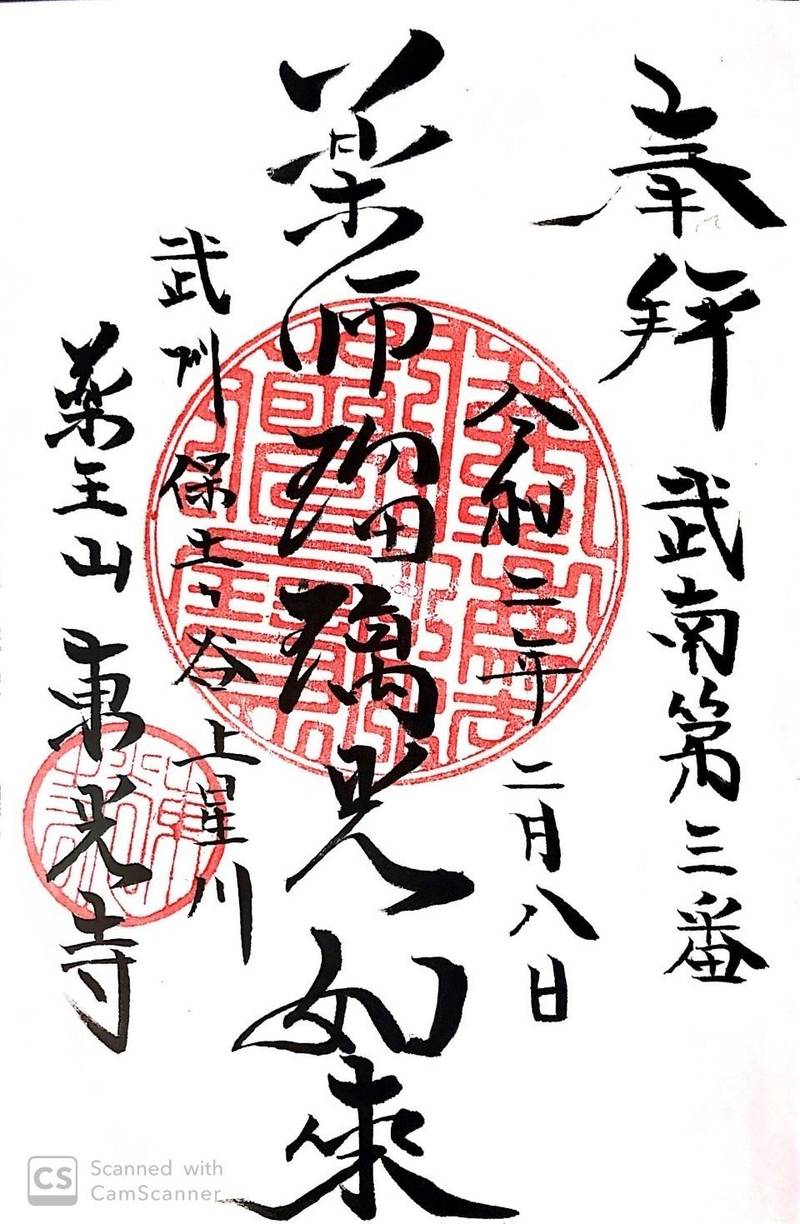 奉拝
武南第三番
令和二年二月八日
薬師瑠璃光如来
武州保土ヶ谷上星川
薬王山東光寺
CS Scanned with
CamScanner